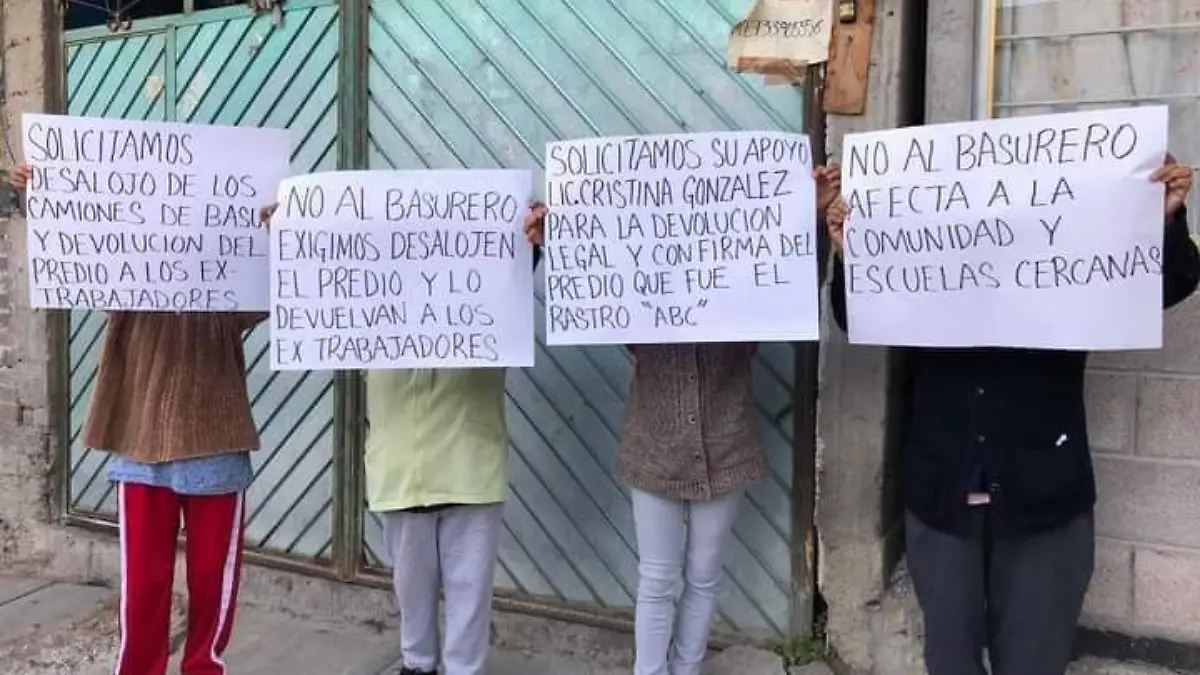 SOLICITAMOS
DESALOJO DE LOS
CAMIONES DE BASU
Y DEVOLUCION DEL
PREDIO A LOS EX-
TRABAJADORES
NO AL BASURERO
EXIGIMOS DESALOJEN
EL PREDIO Y LO
DEVUELVAN A LOS
EX TRABAJADORES
SOLICITAMOS SU APOYO
LIC.CRISTINA GONZALEZ
PARA LA DEVOLUCION
LEGAL Y CONFIRMA DEL
PREDIO QUE FUE EL
RASTRO "ABC"
NO AL BASURERO
AFECTA A LA
COMUNIDAD Y
ESCUELAS CERCANAS